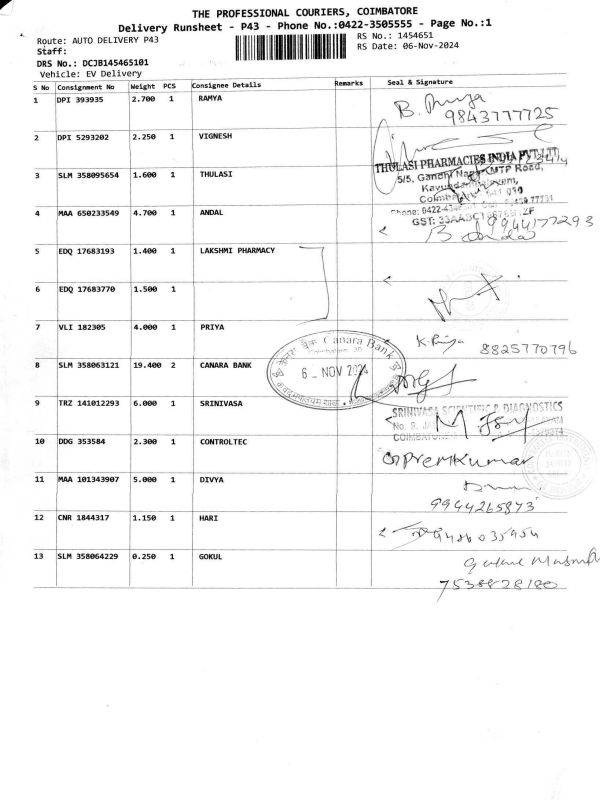 THE PROFESSIONAL COURIERS, COIMBATORE
Delivery Runsheet - P43 - Phone No.:0422-3505555 - Page No.:1
Route: AUTO DELIVERY P43
RS No.: 1454651
Staff:
RS Date: 06-Nov-2024
DRS No.: DCJB145465101
Vehicle: EV Delivery
S No Consignment No Weight PCS Consignee Details Remarks Seal & Signature
1 DPI 393935 2.700 1 RAMYA
9843777725
2 DPI 5293202 2.250 1 VIGNESH
THULASI PHARMACIES INDIA PVT LTD
3 SLM 358095654 1.600 1 THULASI
5/5, Gandhi Nagar, MTP Road,
4 MAA 650233549 4.700 1 ANDAL
9944177293
5 EDQ 17683193 1.400 1 LAKSHMI PHARMACY
6 EDQ 17683770 1.500 1
7 VLI 182305 4.000 1 PRIYA
K. Priya 8825770796
केनरा बैंक Canara Bank
8 SLM 358063121 19.400 2 CANARA BANK
6 - NOV 2024
9 TRZ 141012293 6.000 1 SRINIVASA
SRINIVASA SCIENTIFIC & DIAGNOSTICS
COIMBATORE
10 DDG 353584 2.300 1 CONTROLTEC
Premkumar
11 MAA 101343907 5.000 1 DIVYA
9944265873
12 CNR 1844317 1.150 1 HARI
13 SLM 358064229 0.250 1 GOKUL
7538828180